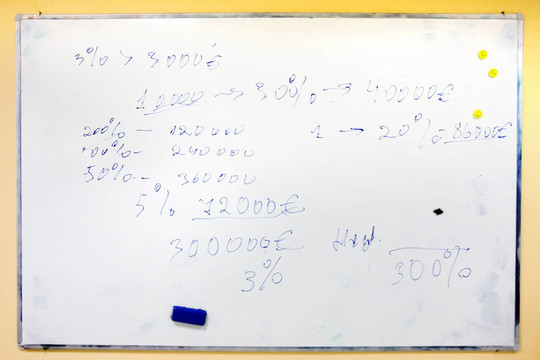 3% > 3000€
12000 → 30% → 40000€
200% - 120000
1 → 20% - 86000€
400% - 240000
50% - 360000
5% 72000€
300000€
3%
300%